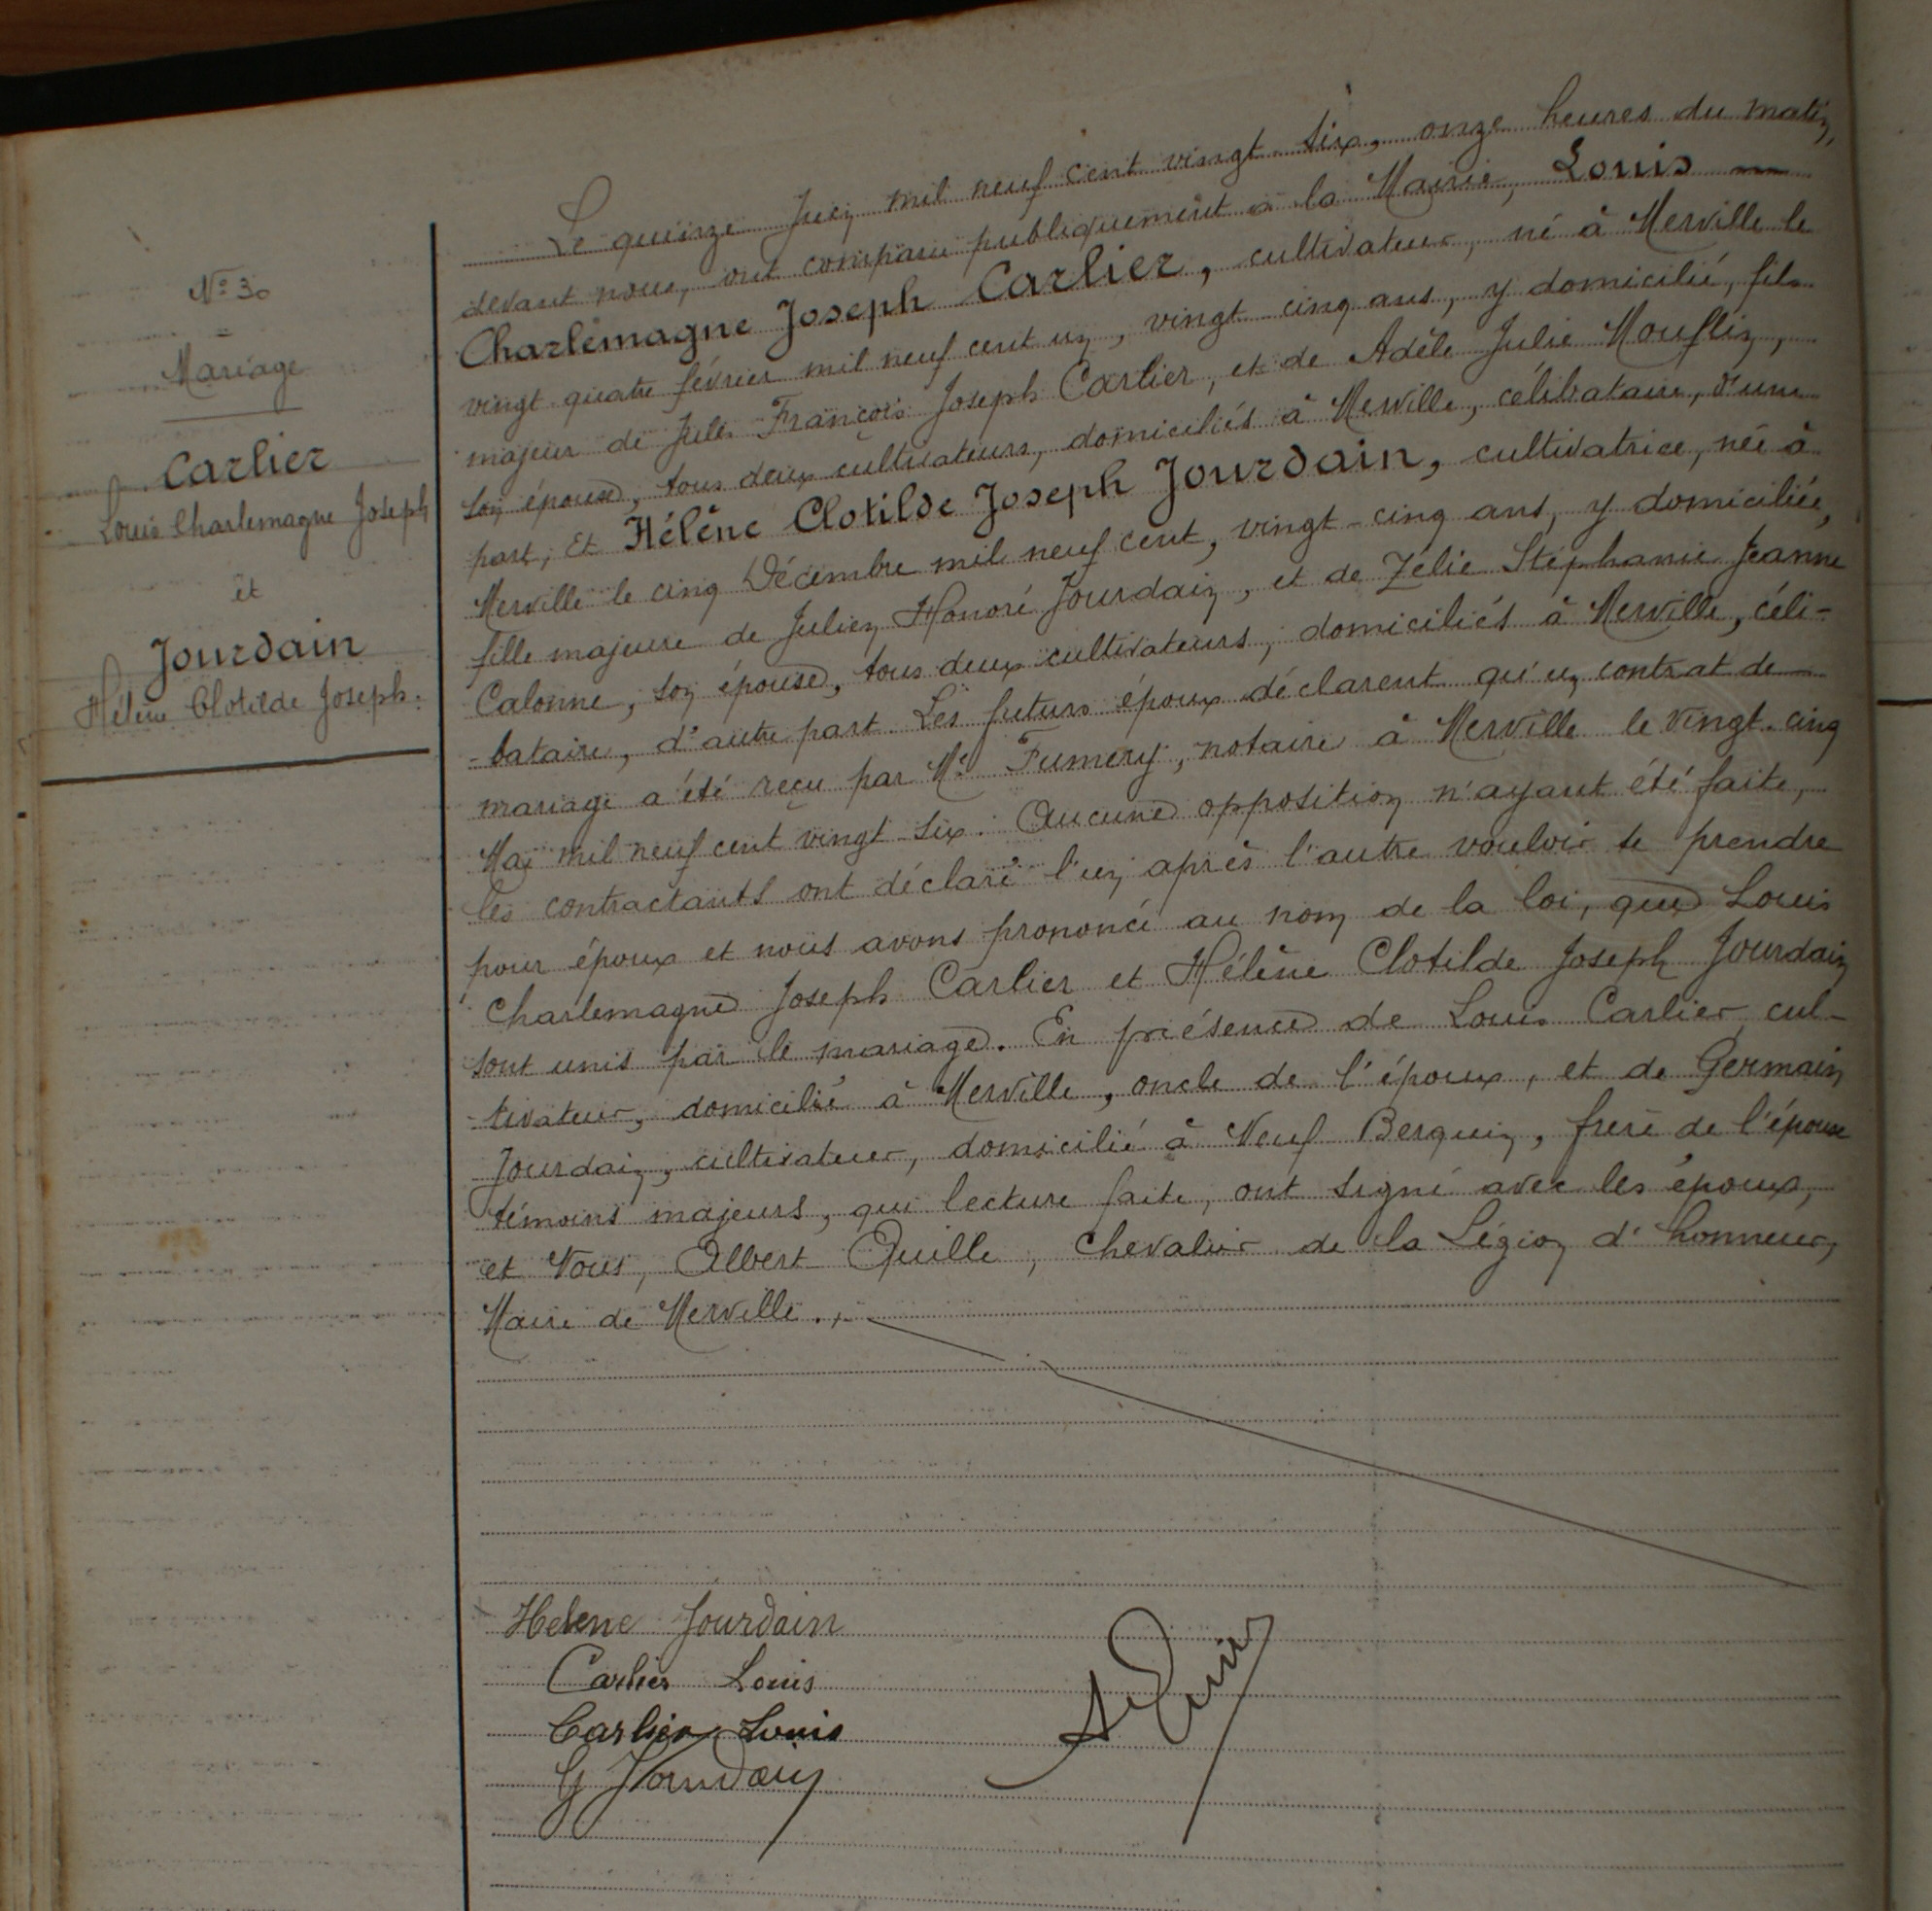 N° 30
Mariage
Carlier
Louis Charlemagne Joseph
et
Jourdain
Hélène Clotilde Joseph.
Le quinze Juin mil neuf cent vingt six, onze heures du matin,
devant nous, ont comparu publiquement à la Mairie, Louis
Charlemagne Joseph Carlier, cultivateur, né à Merville le
vingt quatre février mil neuf cent un, vingt cinq ans, y domicilié, fils
majeur de Jules François Joseph Carlier, et de Adèle Julie Mouflin,
son épouse, tous deux cultivateurs, domiciliés à Merville, célibataire, d'une
part, Et Hélène Clotilde Joseph Jourdain, cultivatrice, née à
Merville le cinq Décembre mil neuf cent, vingt-cinq ans, y domiciliée,
fille majeure de Julien Honoré Jourdain, et de Zélie Stéphanie Jeanne
Calonne, son épouse, tous deux cultivateurs, domiciliés à Merville, céli-
-bataire, d'autre part. Les futurs époux déclarent qu'un contrat de
mariage a été reçu par Me Fumery, notaire à Merville le vingt-cinq
Mai mil neuf cent vingt six. Aucune opposition n'ayant été faite,
les contractants ont déclaré l'un après l'autre vouloir se prendre
pour époux et nous avons prononcé au nom de la loi, que Louis
Charlemagne Joseph Carlier et Hélène Clotilde Joseph Jourdain
sont unis par le mariage. En présence de Louis Carlier, cul-
-tivateur, domicilié à Merville, oncle de l'époux, et de Germain
Jourdain, cultivateur, domicilié à Neuf Berquin, frère de l'épouse
témoins majeurs, qui lecture faite, ont signé avec les époux,
et Nous, Albert Quille, Chevalier de la Légion d'honneur,
Maire de Merville.
Helene Jourdain
Carlier Louis
Carlier Louis
G Jourdain